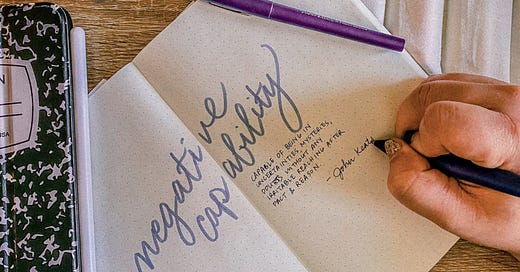 negative
capability
CAPABLE OF BEING IN
UNCERTAINTIES, MYSTERIES,
DOUBTS WITHOUT ANY
IRRITABLE REACHING AFTER
FACT & REASON.
- John Keats
N
USA